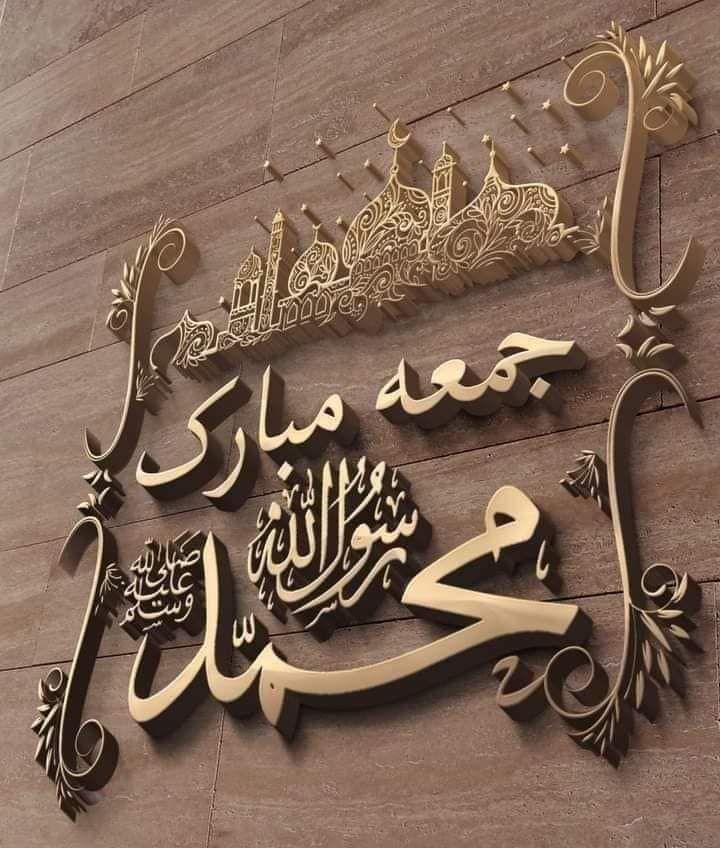 جمعه مبارک
محمد رسول الله
صلى الله عليه وسلم